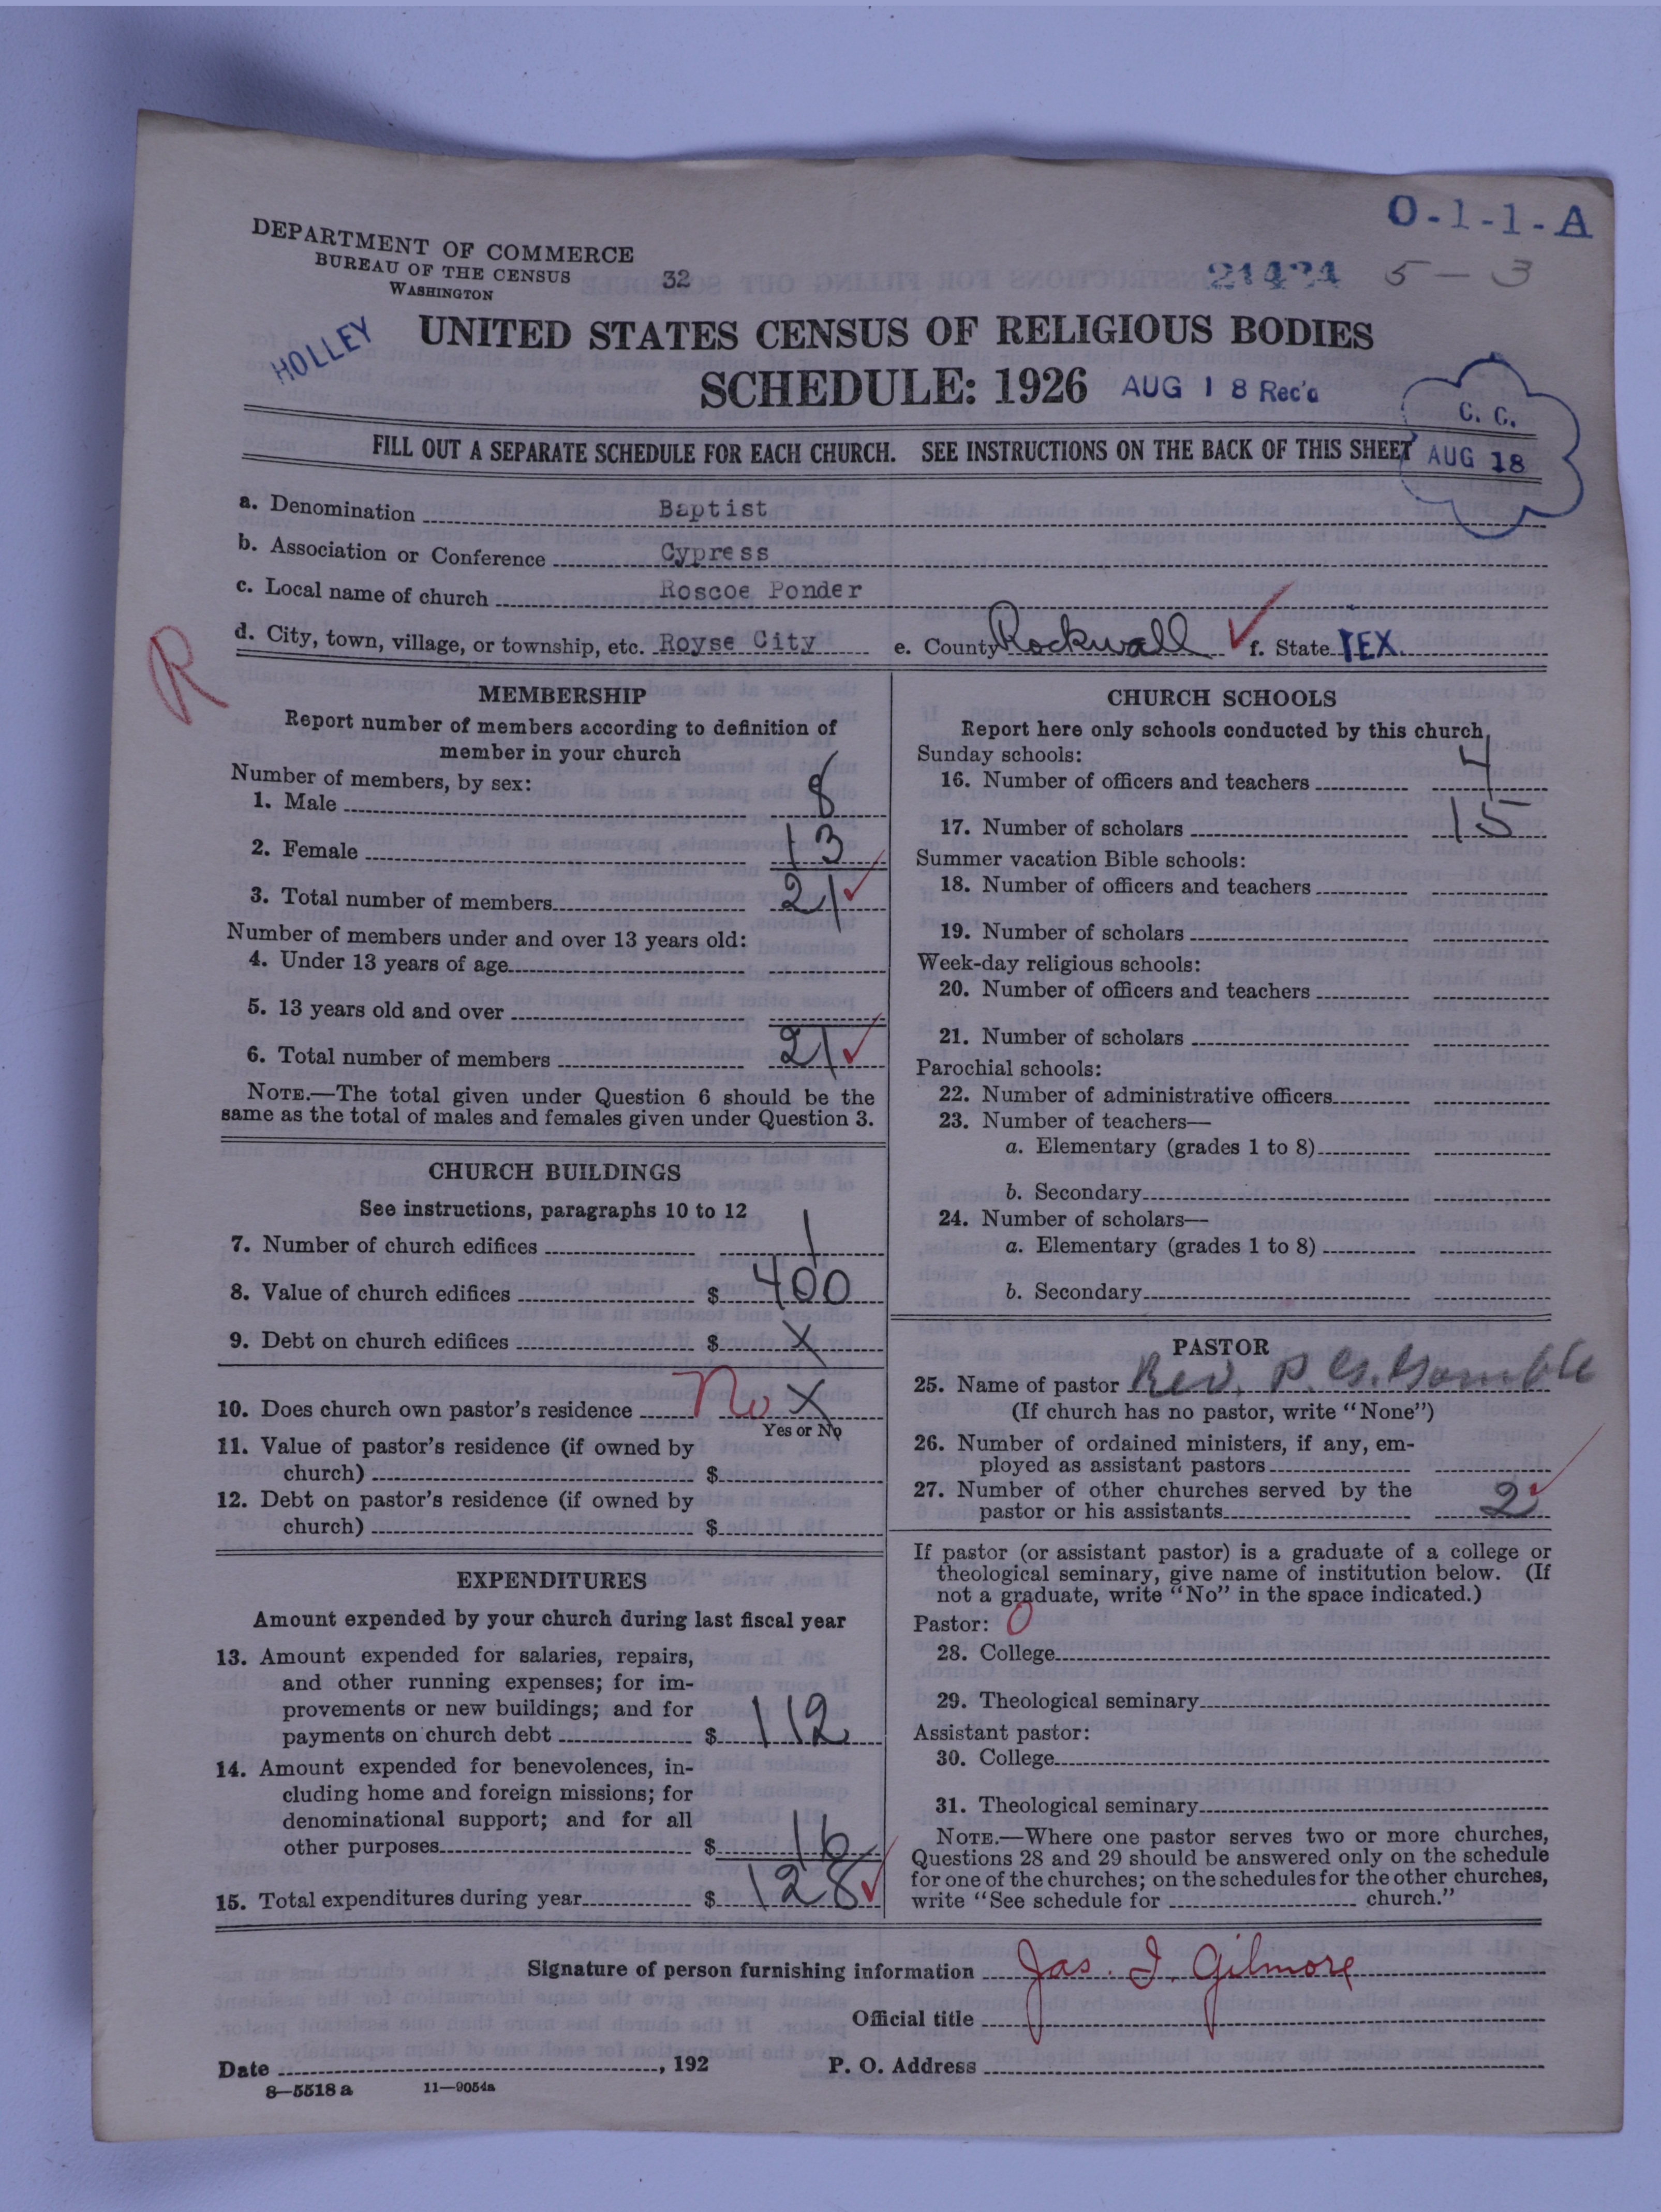 O-1-1-A
DEPARTMENT OF COMMERCE
BUREAU OF THE CENSUS
WASHINGTON
32
21424 5-3
HOLLEY
UNITED STATES CENSUS OF RELIGIOUS BODIES
SCHEDULE: 1926 AUG 18 Rec'd
C. C.
AUG 18
FILL OUT A SEPARATE SCHEDULE FOR EACH CHURCH. SEE INSTRUCTIONS ON THE BACK OF THIS SHEET
a. Denomination Baptist
b. Association or Conference Cypress
c. Local name of church Roscoe Ponder
d. City, town, village, or township, etc. Royse City e. County Rockwall f. State TEX.
R
MEMBERSHIP
Report number of members according to definition of
member in your church
Number of members, by sex:
1. Male 8
2. Female 13
3. Total number of members 21
Number of members under and over 13 years old:
4. Under 13 years of age
5. 13 years old and over
6. Total number of members 21
NOTE.—The total given under Question 6 should be the
same as the total of males and females given under Question 3.
CHURCH BUILDINGS
See instructions, paragraphs 10 to 12
7. Number of church edifices 1
8. Value of church edifices $ 400
9. Debt on church edifices $ X
10. Does church own pastor's residence No X
Yes or No
11. Value of pastor's residence (if owned by
church) $
12. Debt on pastor's residence (if owned by
church) $
EXPENDITURES
Amount expended by your church during last fiscal year
13. Amount expended for salaries, repairs,
and other running expenses; for im-
provements or new buildings; and for
payments on church debt $ 112
14. Amount expended for benevolences, in-
cluding home and foreign missions; for
denominational support; and for all
other purposes $ 16
15. Total expenditures during year $ 128
CHURCH SCHOOLS
Report here only schools conducted by this church
Sunday schools:
16. Number of officers and teachers 4
17. Number of scholars 15
Summer vacation Bible schools:
18. Number of officers and teachers
19. Number of scholars
Week-day religious schools:
20. Number of officers and teachers
21. Number of scholars
Parochial schools:
22. Number of administrative officers
23. Number of teachers—
a. Elementary (grades 1 to 8)
b. Secondary
24. Number of scholars—
a. Elementary (grades 1 to 8)
b. Secondary
PASTOR
25. Name of pastor Rev. P. G. Gamble
(If church has no pastor, write "None")
26. Number of ordained ministers, if any, em-
ployed as assistant pastors
27. Number of other churches served by the
pastor or his assistants 2
If pastor (or assistant pastor) is a graduate of a college or
theological seminary, give name of institution below. (If
not a graduate, write "No" in the space indicated.)
Pastor: 0
28. College
29. Theological seminary
Assistant pastor:
30. College
31. Theological seminary
NOTE.—Where one pastor serves two or more churches,
Questions 28 and 29 should be answered only on the schedule
for one of the churches; on the schedules for the other churches,
write "See schedule for church."
Signature of person furnishing information Jas. I. Gilmore
Official title
Date , 192 P. O. Address
8—5518 a 11—9054a